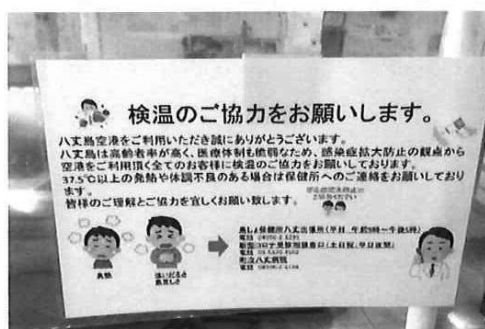 検温のご協力をお願いします。
八丈島空港をご利用いただき誠にありがとうございます。
八丈島は高齢者率が高く、医療体制も脆弱なため、感染症拡大防止の観点から
空港をご利用頂く全てのお客様に検温のご協力をお願いしております。
37.5℃以上の発熱や体調不良のある場合は保健所へのご連絡をお願いしており
ます。
皆様のご理解とご協力を宜しくお願い致します。
島しょ保健所八丈出張所(平日 午前9時~午後5時)
電話
新型コロナ受診相談窓口(土日祝、平日夜間)
電話
町立八丈病院
電話
発熱
強いだるさ
息苦しさ